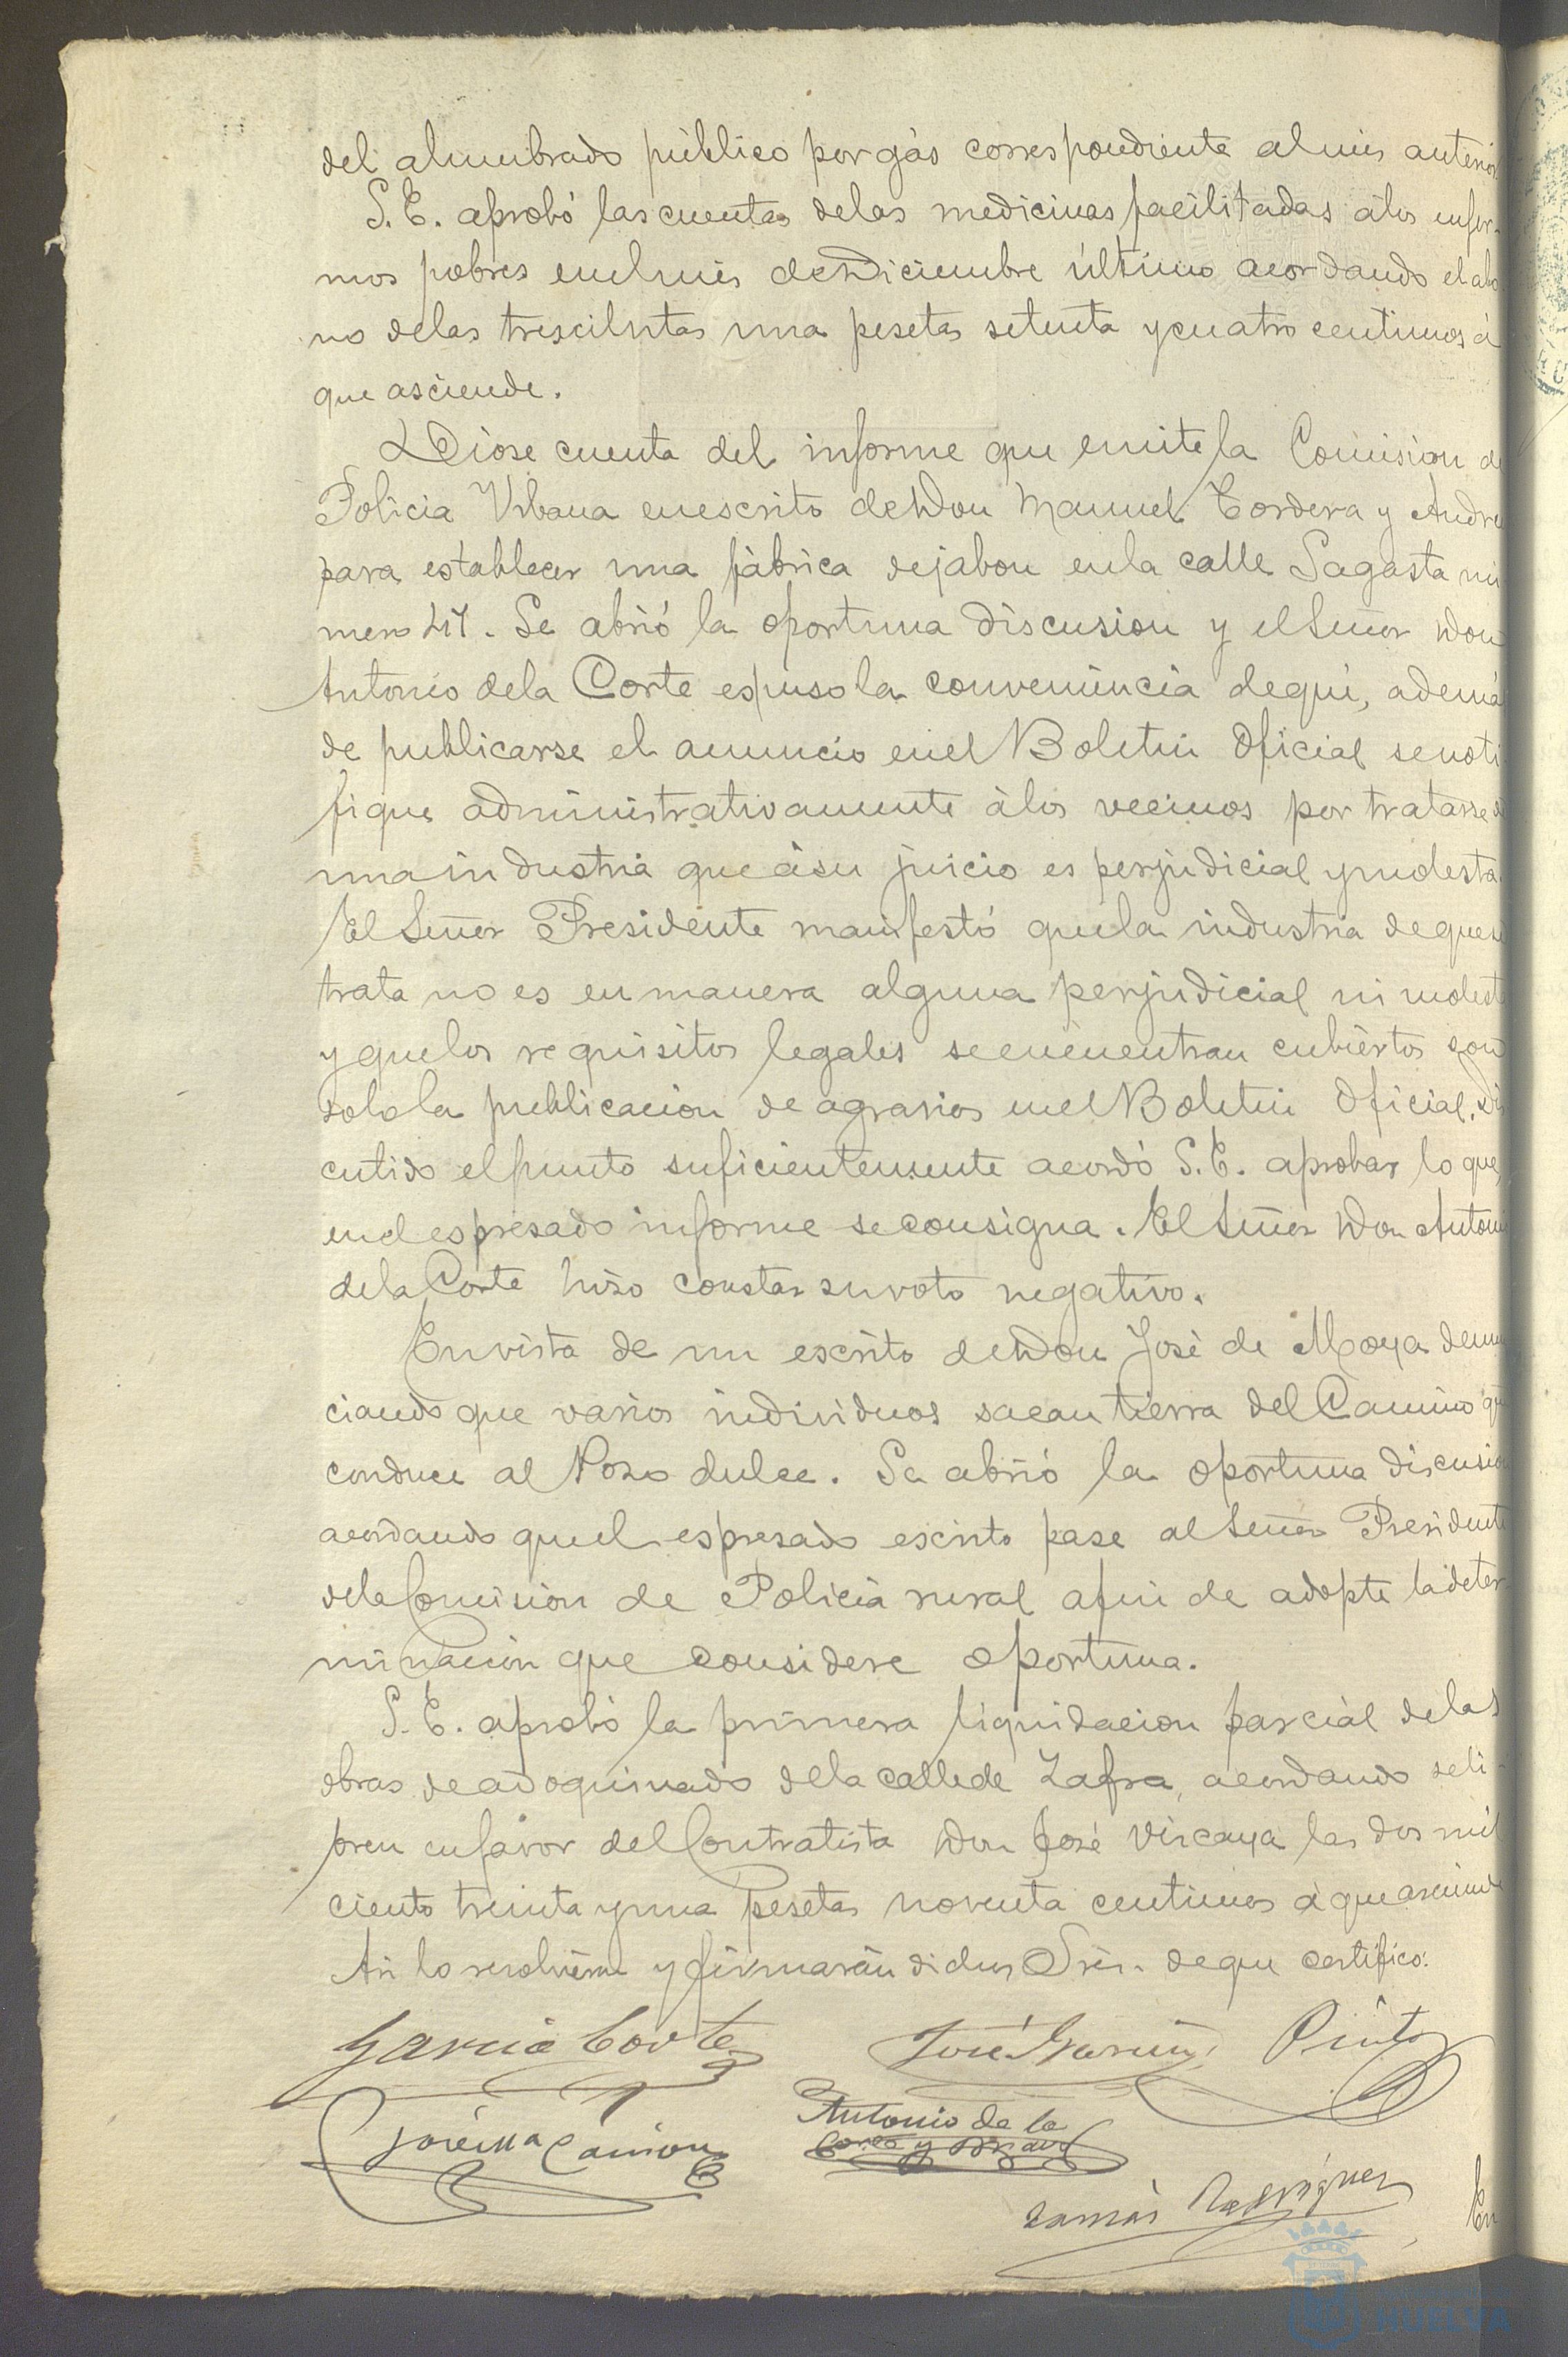 del alumbrado público por gas correspondiente al mes anterior
S. E. aprobó las cuentas de las medicinas facilitadas á los enfer-
mos pobres en el mes de Diciembre último acordando el abo
no de las trescientas una pesetas setenta y cuatro centimos á
que asciende.
Dióse cuenta del informe que emite la Comision de
Policia Urbana en escrito de Don Manuel Cordera y Andre
para establecer una fábrica de jabon en la calle Sagasta nú
mero 47. Se abrió la oportuna discusion y el Señor Don
Antonio de la Corte espuso la conveniencia de que, ademá
de publicarse el anuncio en el Boletin Oficial se noti
fique administrativamente á los vecinos por tratarse de
una industria que á su juicio es perjudicial y molesta.
El Señor Presidente manifestó que la industria de que se
trata no es en manera alguna perjudicial ni molesta
y que los requisitos legales se encuentran cubiertos con
solo la publicacion de agravios en el Boletin Oficial. Dis
cutido el punto suficientemente acordó S. E. aprobar lo que
en el espresado informe se consigna. El Señor Don Antonio
de la Corte hizo constar su voto negativo.
En vista de un escrito de Don José de Moya denun
ciando que varios individuos sacan tierra del Camino que
conduce al Pozo dulce. Se abrió la oportuna discusion
acordando que el espresado escrito pase al Señor Presidente
de la Comision de Policia rural a fin de adopte la deter
minacion que considere oportuna.
S. E. aprobó la primera liquidacion parcial de las
obras de adoquinado de la calle de Zafra, acordando se li-
bren en favor del Contratista Don José Vizcaya las dos mil
ciento treinta y una pesetas noventa centimos á que asciende
Asi lo resolvieron y firmarán dichos Sres. de que certifico.
Garcia Cortes José Garcia Pinto
José Ma Camion Antonio de la
Corte y Bravo
Tomás Rodriguez
En
HUELVA